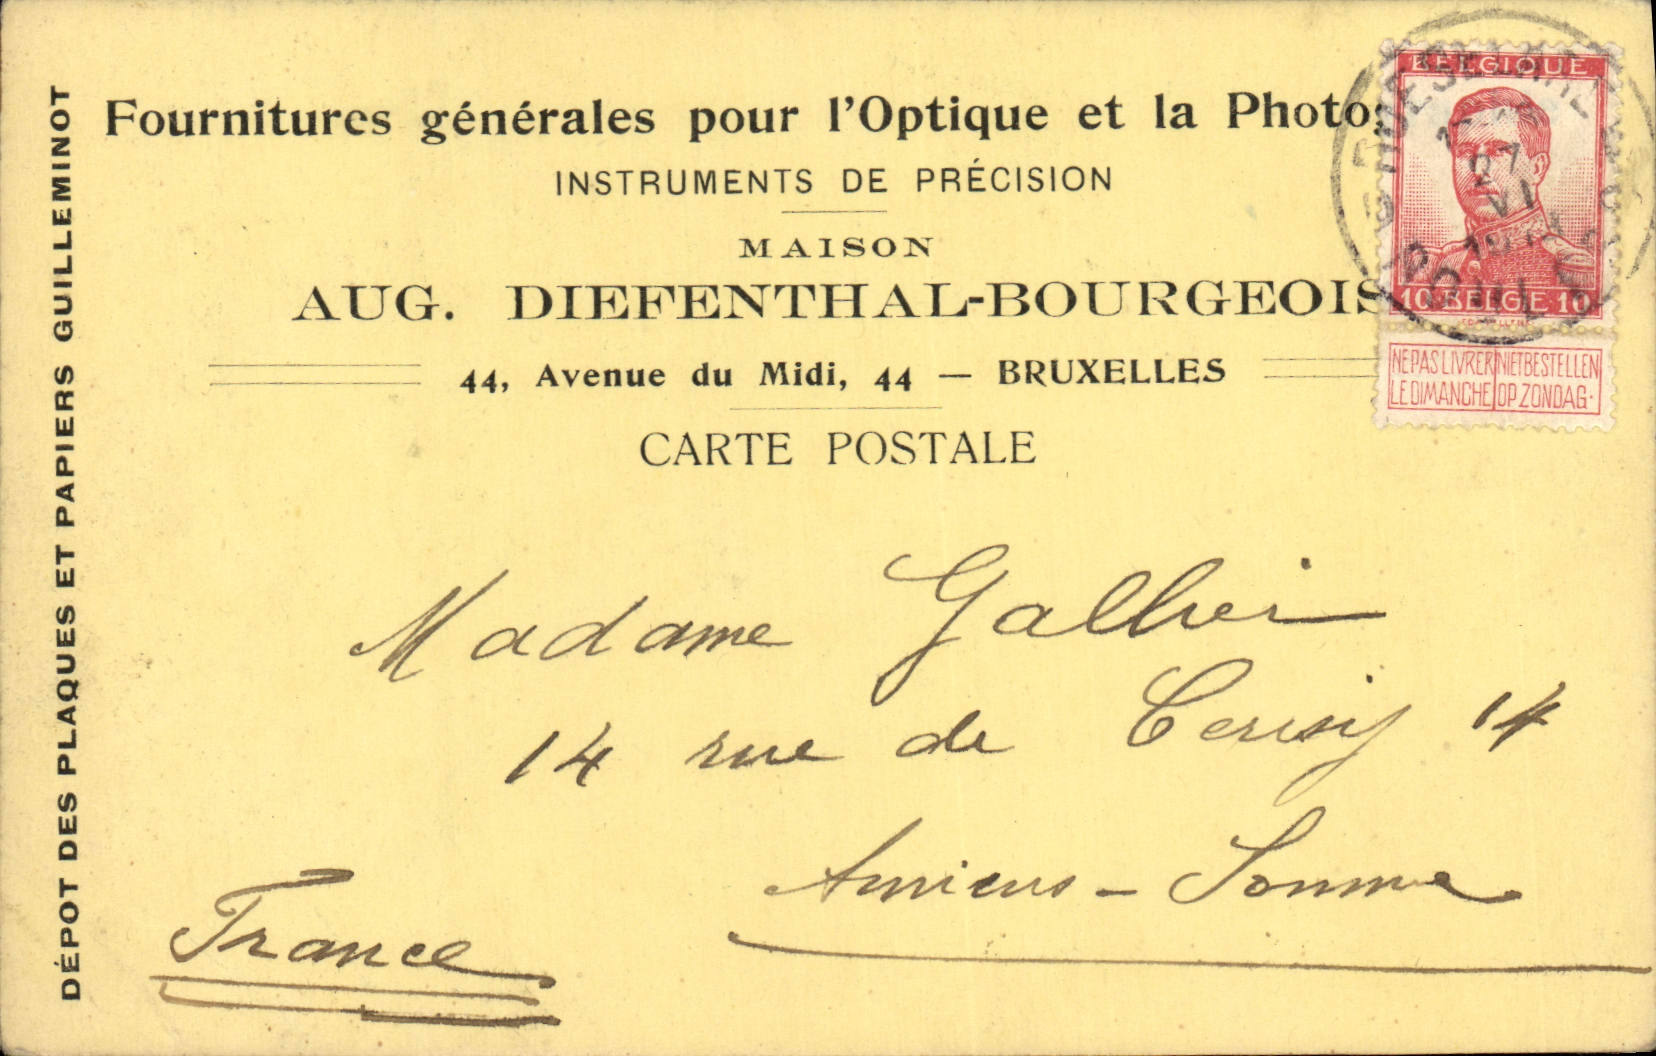 Fournitures générales pour l'Optique et la Photog
INSTRUMENTS DE PRÉCISION
MAISON
AUG. DIEFENTHAL-BOURGEOIS
44, Avenue du Midi, 44 — BRUXELLES
CARTE POSTALE
DÉPOT DES PLAQUES ET PAPIERS GUILLEMINOT
BELGIQUE
10 BELGIE 10
NE PAS LIVRER LE DIMANCHE
NIET BESTELLEN OP ZONDAG.
27
VI
Madame Gallier
14 rue de Cerisy 14
Amiens - Somme
France